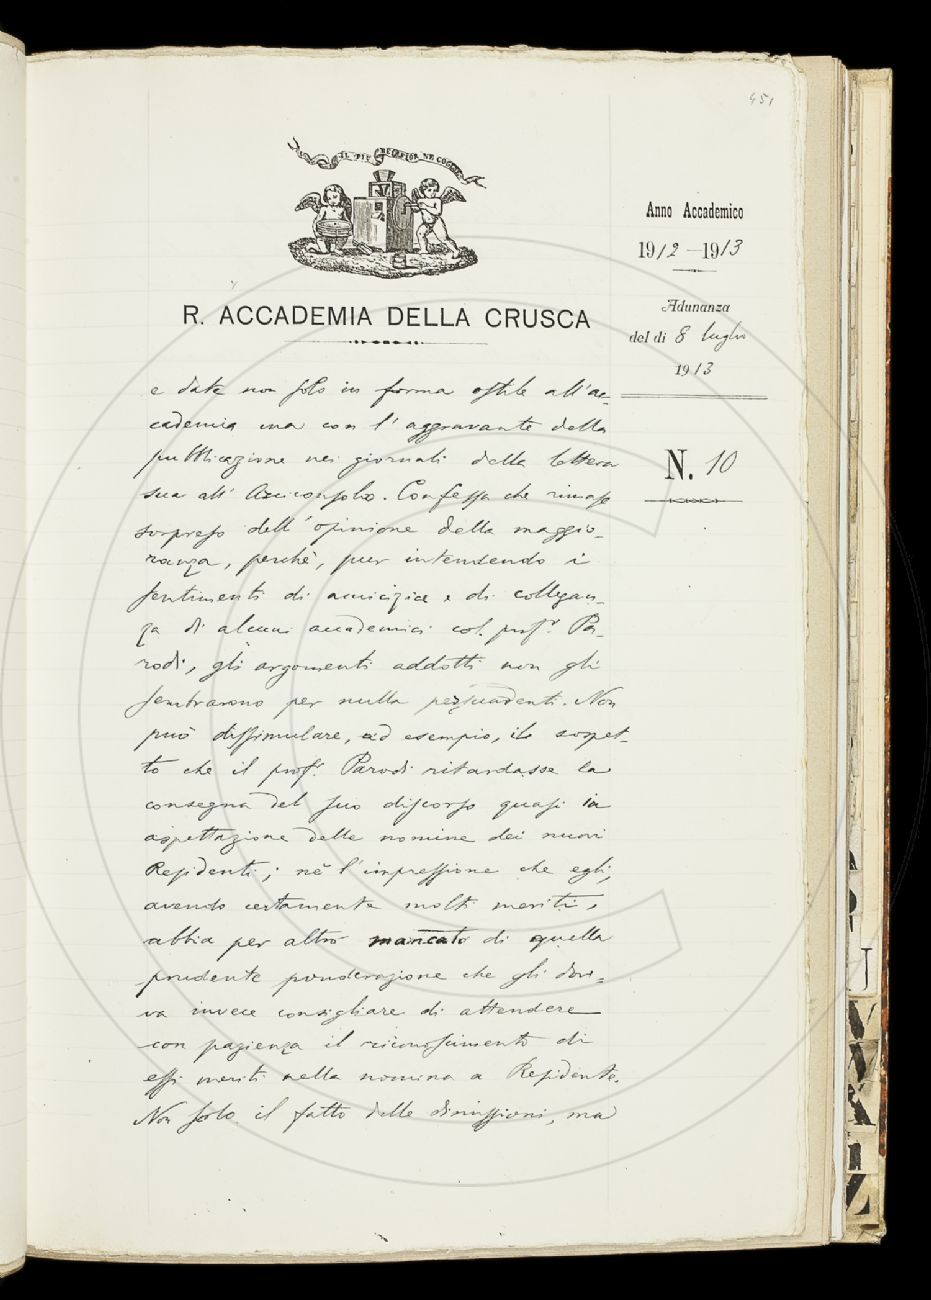 451
IL PIÙ BEL FIOR NE COGLIE
Anno Accademico
1912-1913
Adunanza
del dì 8 luglio
1913
N. 10
R. ACCADEMIA DELLA CRUSCA
e date non solo in forma ostile all'ac-
cademia ma con l'aggravante della
pubblicazione nei giornali della lettera
sua all'Arciconsolo. Confessa che rimase
sorpreso dell'opinione della maggio-
ranza, perchè, pur intendendo i
sentimenti di amicizia e di collegan-
za di alcuni accademici col prof.r Pa-
rodi, gli argomenti addotti non gli
sembrarono per nulla persuadenti. Non
può dissimulare, ad esempio, il sospet-
to che il prof.r Parodi ritardasse la
consegna del suo discorso quasi in
aspettazione delle nomine dei nuovi
Residenti; nè l'impressione che egli,
avendo certamente molti meriti,
abbia per altro mancato di quella
prudente ponderazione che gli dove-
va invece consigliare di attendere
con pazienza il riconoscimento di
essi meriti nella nomina a Residente.
Non solo il fatto delle dimissioni, ma